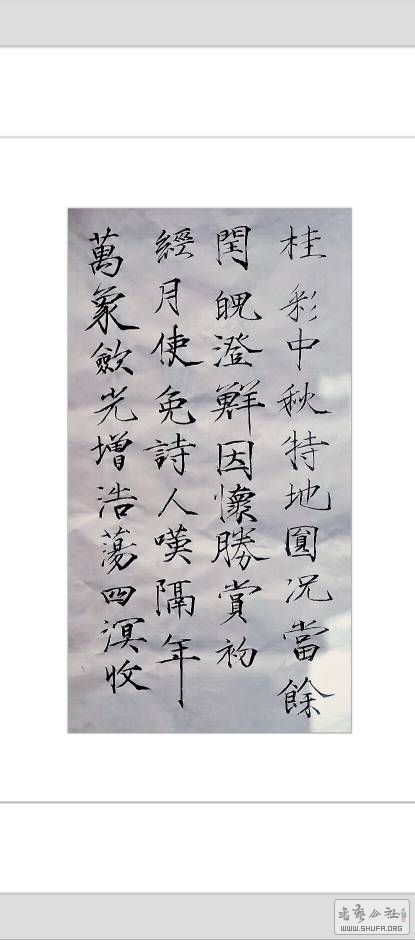 桂彩中秋特地圓况當餘
閏魄澄鮮因懷勝賞初
經月使免詩人嘆隔年
萬象歛光增浩蕩四溟收
書藝公社
WWW.SHUFA.ORG